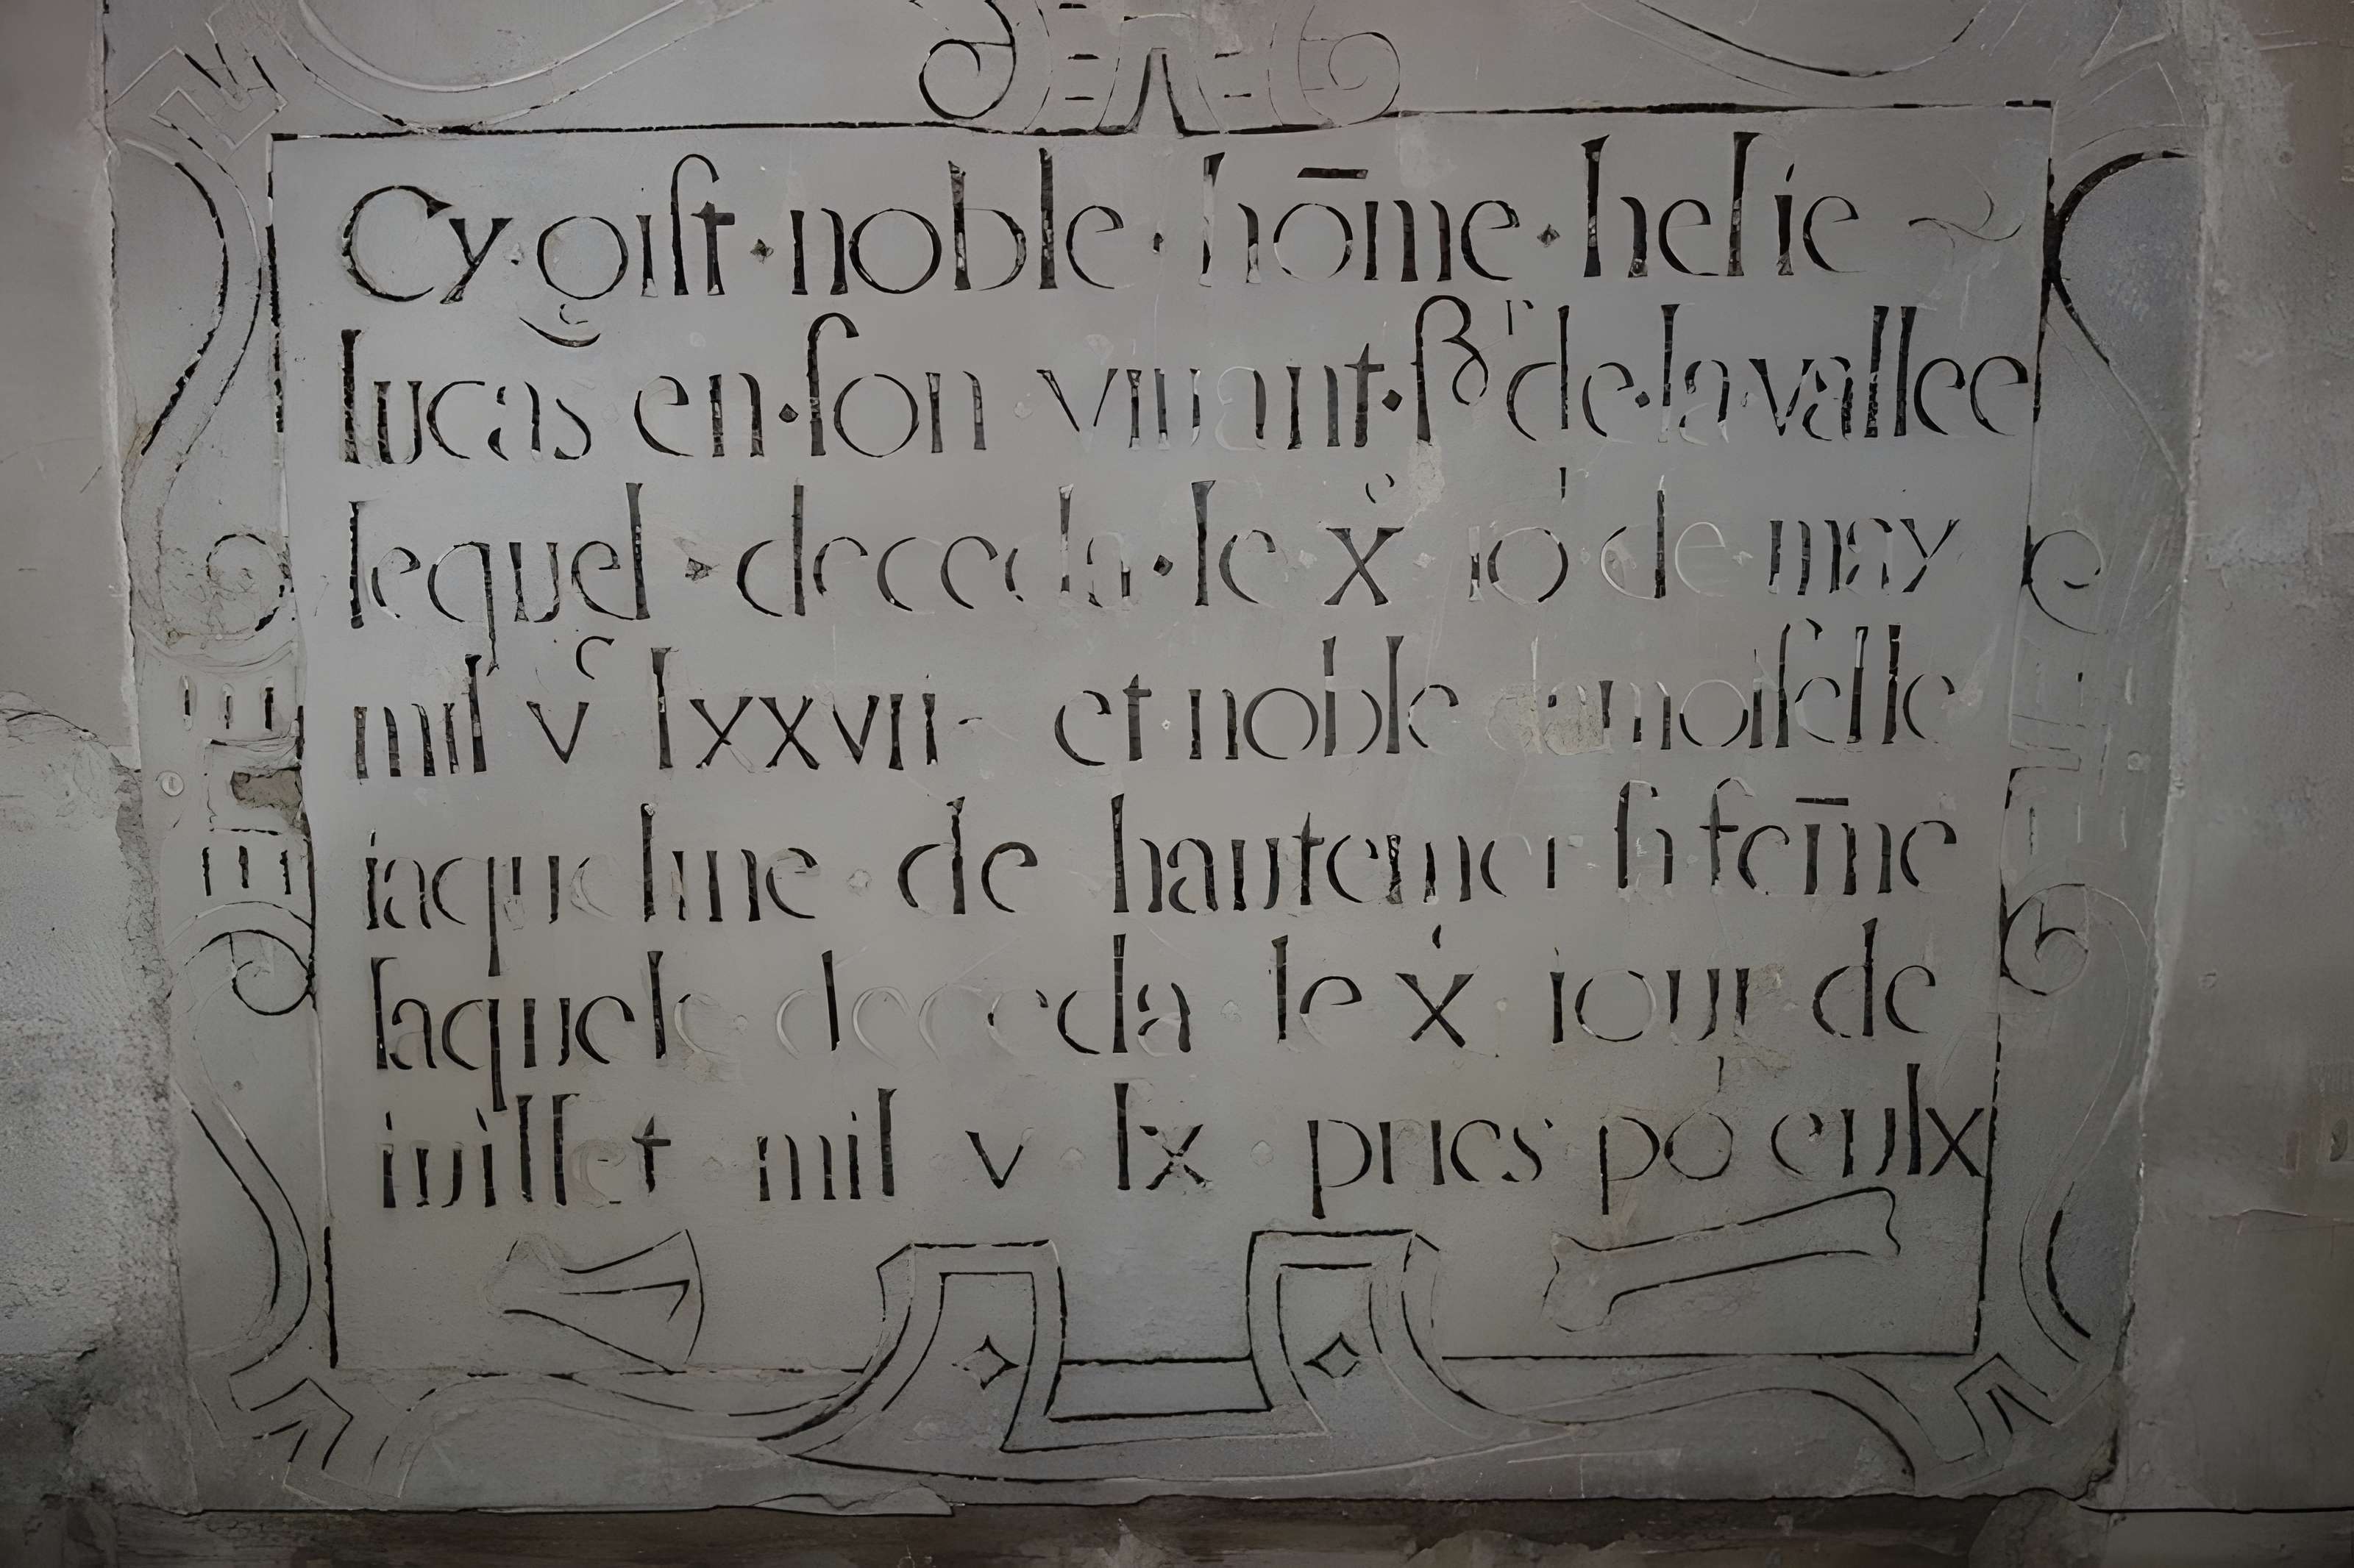 Cy · giſt · noble · hōme · helie ~
lucas en · ſon · viuant · ſʳ de · la · vallee
lequel · deceda · le xᵉ ioʳ de · may
mil vᶜ lxxvii et noble damoiſelle
iaqueline · de hautemer · ſa fem̄e
laquele deceda le x iour de
iuillet mil v lx · pries poʳ eulx